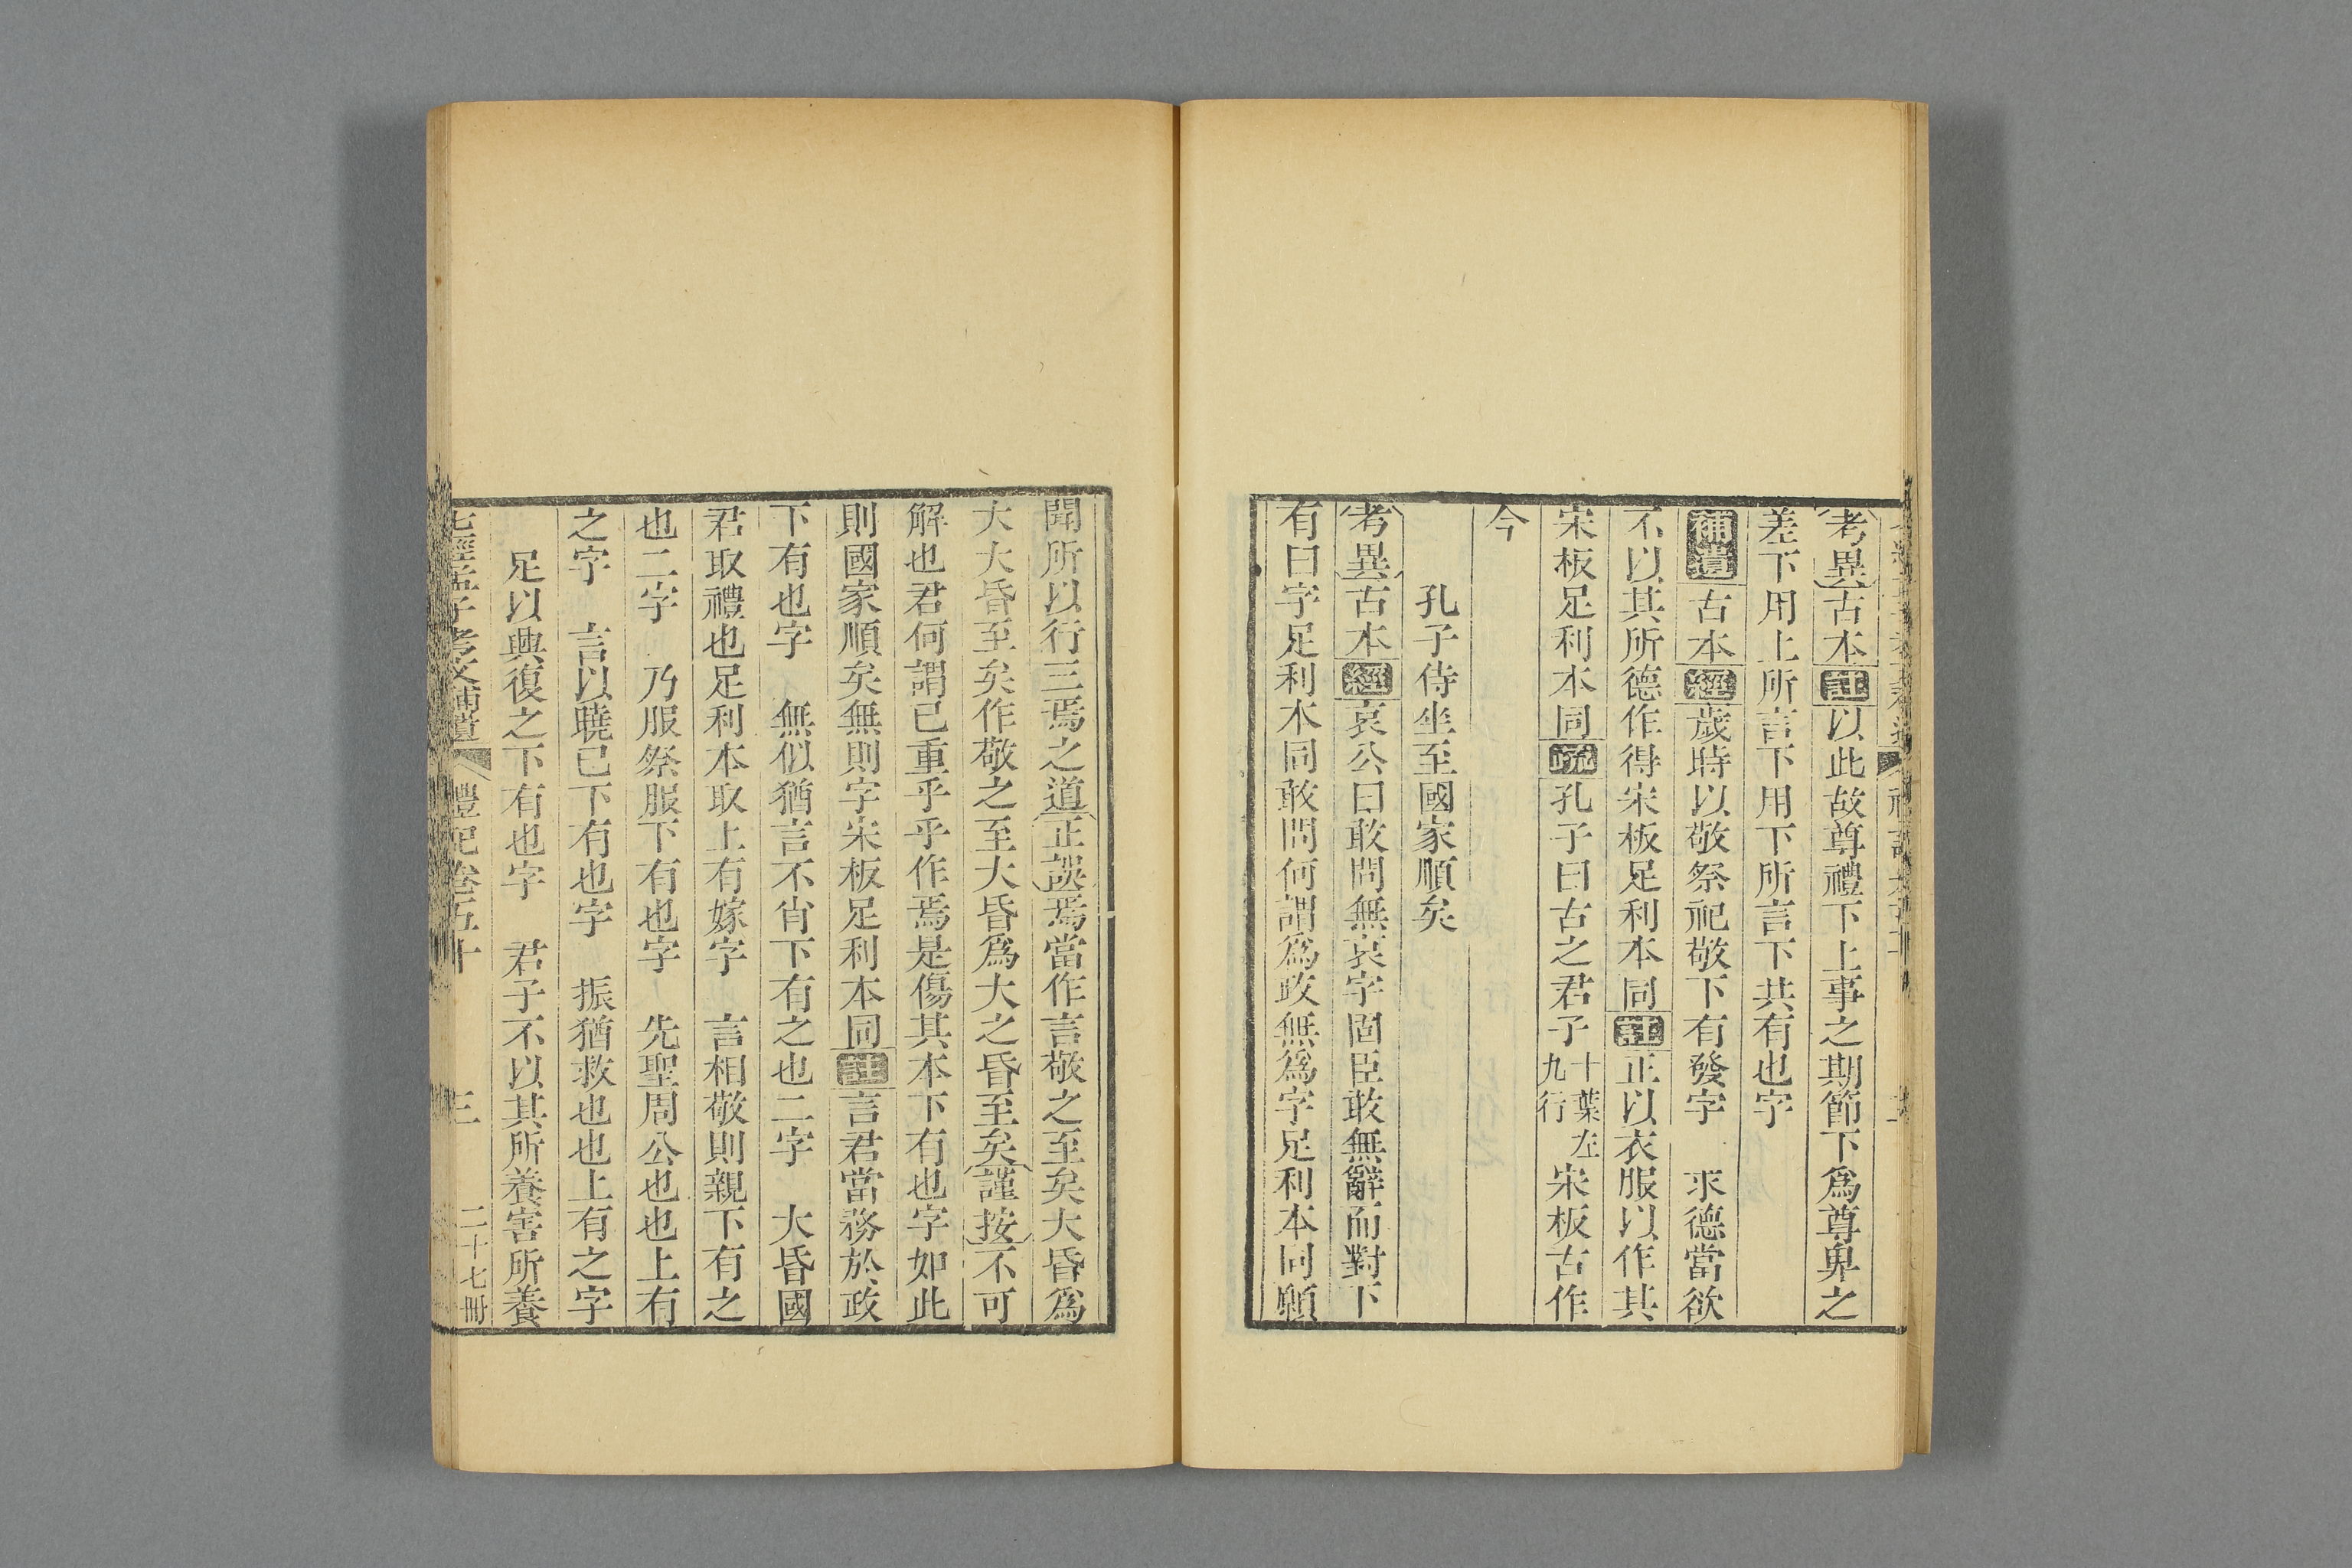 考異古本註以此故尊禮下上事之期節下爲尊卑之
差下用上所言下用下所言下共有也字
補遺古本經歲時以敬祭祀敬下有發字　求德當欲
不以其所德作得宋板足利本同註正以衣服以作其
宋板足利本同疏孔子曰古之君子十葉左九行宋板古作
今
孔子侍坐至國家順矣
考異古本經哀公曰敢問無哀字固臣敢無辭而對下
有曰字足利本同敢問何謂爲政無爲字足利本同願
聞所以行三焉之道正誤焉當作言敬之至矣大昏爲
大大昏至矣作敬之至大昏爲大之昏至矣謹按不可
解也君何謂已重乎乎作焉是傷其本下有也字如此
則國家順矣無則字宋板足利本同註言君當務於政
下有也字　無似猶言不肖下有之也二字　大昏國
君取禮也足利本取上有嫁字　言相敬則親下有之
也二字　乃服祭服下有也字　先聖周公也也上有
之字　言以曉已下有也字　振猶救也也上有之字
足以興復之下有也字　君子不以其所養害所養
七經孟子考文補遺　禮記卷五十　三　二十七冊